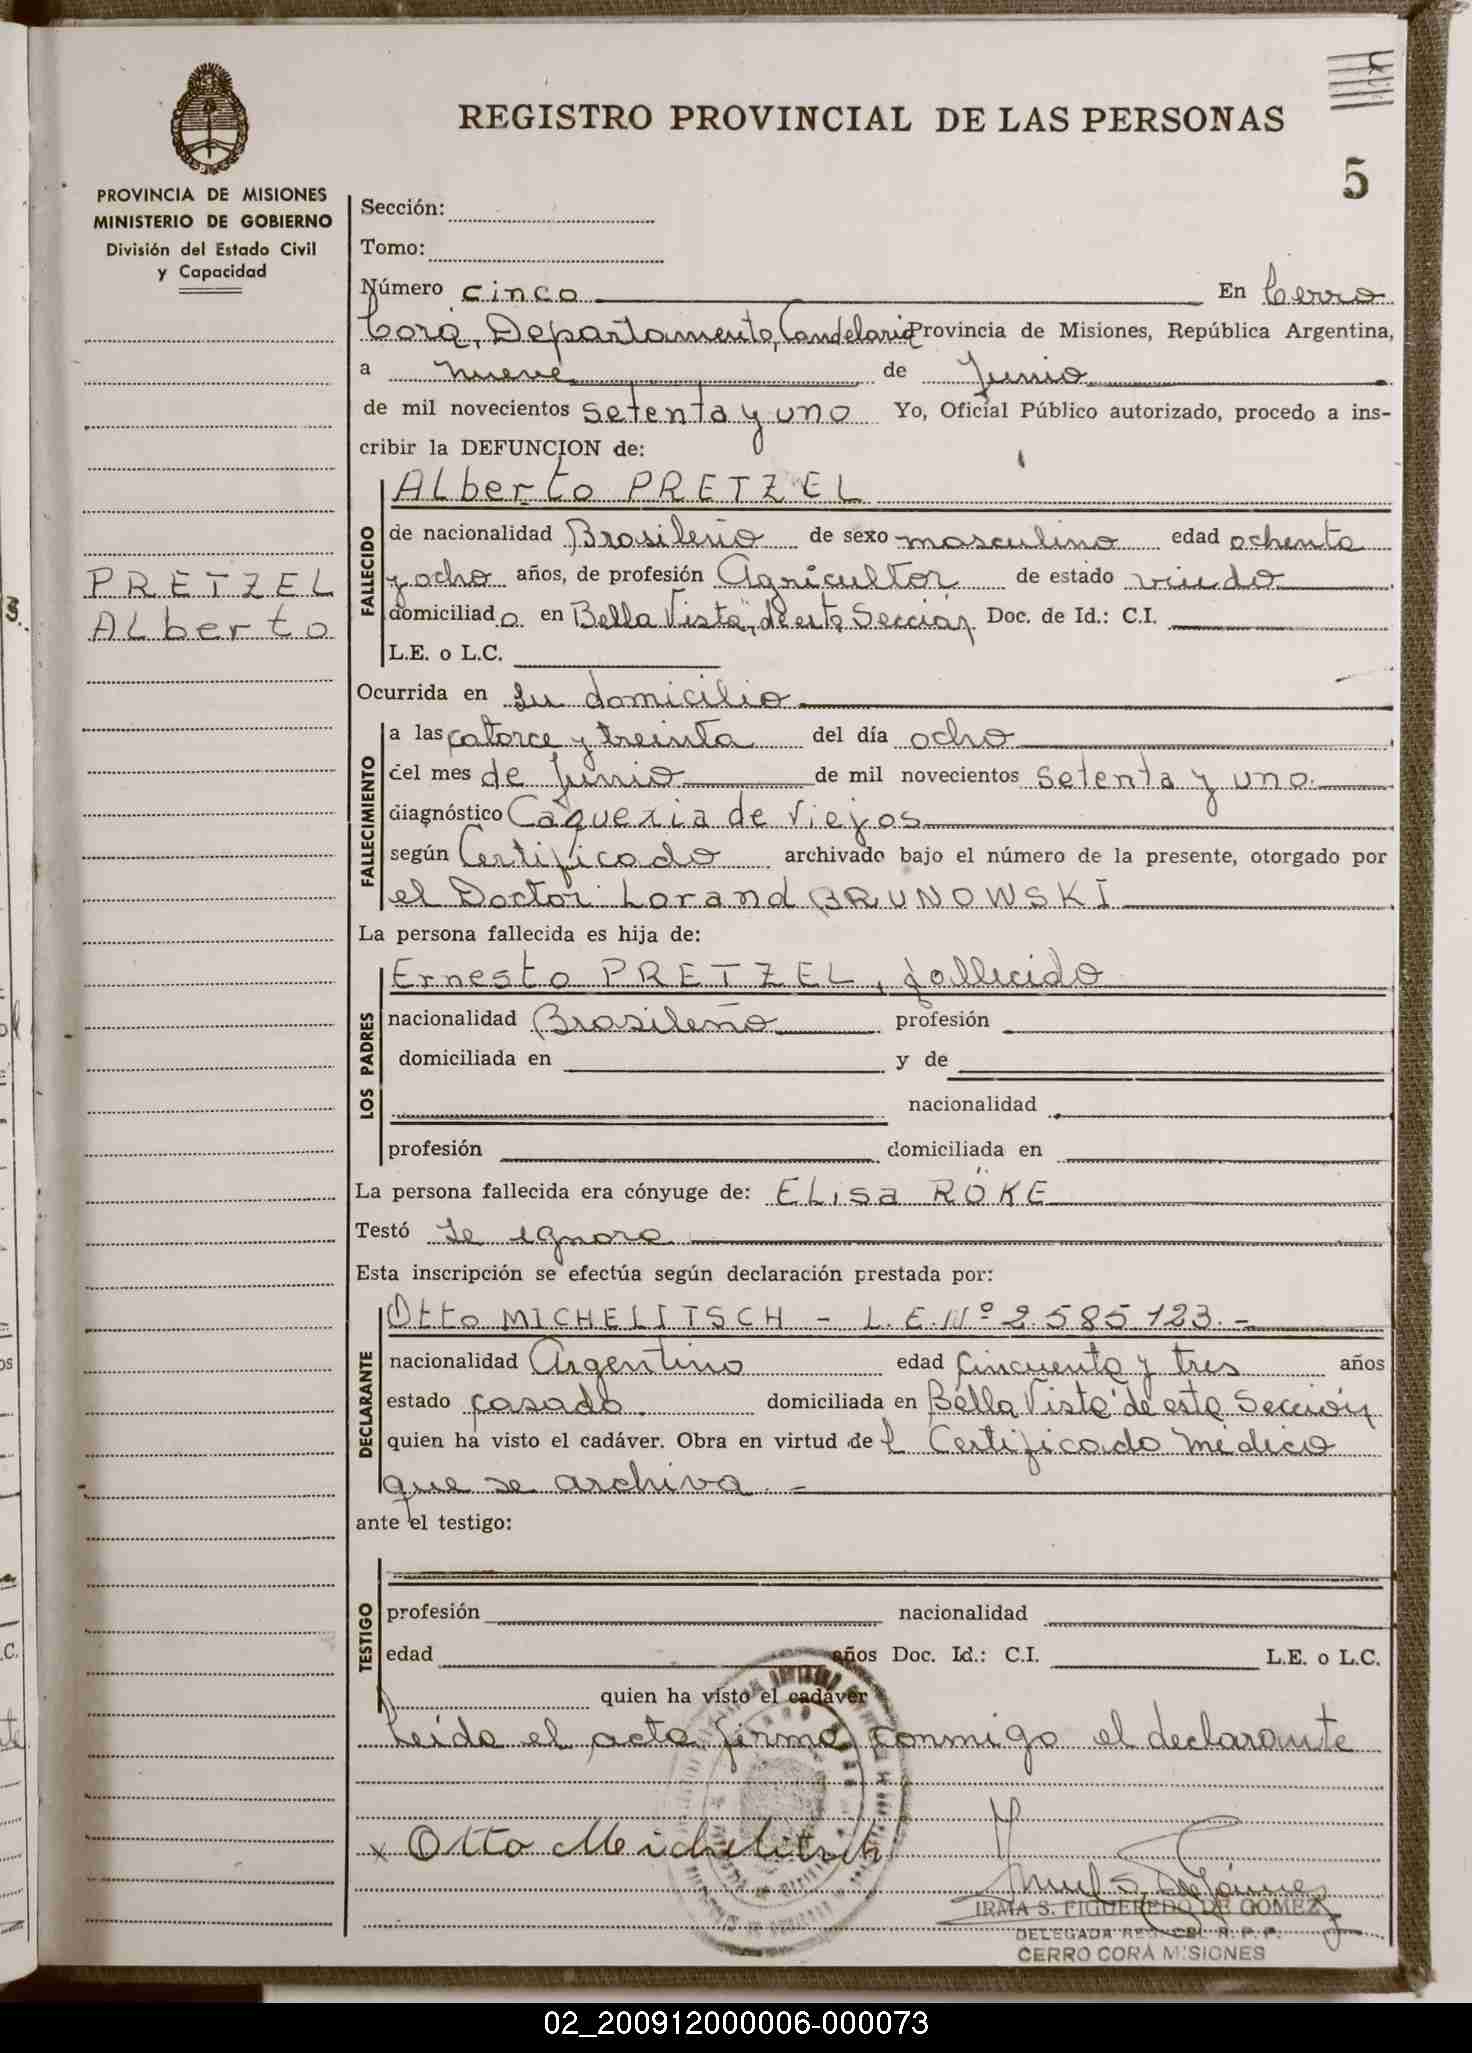 REGISTRO PROVINCIAL DE LAS PERSONAS
5
PROVINCIA DE MISIONES
MINISTERIO DE GOBIERNO
División del Estado Civil
y Capacidad
PRETZEL
Alberto
Sección:
Tomo:
Número cinco En Cerro
Corá, Departamento, Candelaria Provincia de Misiones, República Argentina,
a nueve de Junio
de mil novecientos setenta y uno Yo, Oficial Público autorizado, procedo a ins-
cribir la DEFUNCION de:
FALLECIDO
Alberto PRETZEL
de nacionalidad Brasileño de sexo masculino edad ochenta
y ocho años, de profesión Agricultor de estado viudo
domiciliado en Bella Vista, de esta Sección Doc. de Id.: C.I.
L.E. o L.C.
Ocurrida en su domicilio
FALLECIMIENTO
a las catorce y treinta del día ocho
del mes de Junio de mil novecientos setenta y uno
diagnóstico Caquexia de viejos
según Certificado archivado bajo el número de la presente, otorgado por
el Doctor Lorand BRUNOWSKI
La persona fallecida es hija de:
LOS PADRES
Ernesto PRETZEL, fallecido
nacionalidad Brasileño profesión
domiciliada en y de
nacionalidad
profesión domiciliada en
La persona fallecida era cónyuge de: Elisa RÖKE
Testó Se ignora
Esta inscripción se efectúa según declaración prestada por:
DECLARANTE
Otto MICHELITSCH - L.E.Nº 2.585.123.-
nacionalidad Argentino edad cincuenta y tres años
estado casado. domiciliada en Bella Vista de esta Sección
quien ha visto el cadáver. Obra en virtud del Certificado médico
que se archiva. -
ante el testigo:
TESTIGO
profesión nacionalidad
edad años Doc. Id.: C.I. L.E. o L.C.
quien ha visto el cadáver
Leída el acta firma conmigo el declarante
x Otto Michelitsch
IRMA S. FIGUEREDO DE GOMEZ
DELEGADA REG. R. P. P.
CERRO CORÁ MISIONES
02_200912000006-000073